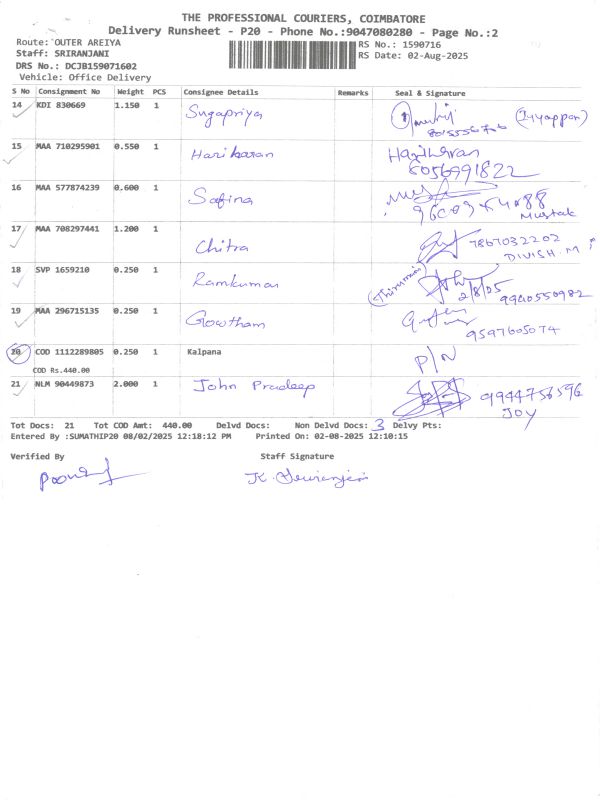 THE PROFESSIONAL COURIERS, COIMBATORE
Delivery Runsheet - P20 - Phone No.:9047080280 - Page No.:2
Route: OUTER AREIYA
RS No.: 1590716
Staff: SRIRANJANI
RS Date: 02-Aug-2025
DRS No.: DCJB159071602
Vehicle: Office Delivery
S No Consignment No Weight PCS Consignee Details Remarks Seal & Signature
14 KDI 830669 1.150 1 Sugapriya (Iyyappan)
15 MAA 710295901 0.550 1 Hariharan Hariharan
8056991822
16 MAA 577874239 0.600 1 Safina
Mustak
17 MAA 708297441 1.200 1 Chitra 7867032202
DIVISH.M
18 SVP 1659210 0.250 1 Ramkumar
2/8/05 9940550982
19 MAA 296715135 0.250 1 Gowtham
9597605074
20 COD 1112289805 0.250 1 Kalpana P/N
COD Rs.440.00
21 NLM 90449873 2.000 1 John Pradeep 9944756596
JOY
Tot Docs: 21 Tot COD Amt: 440.00 Delvd Docs: Non Delvd Docs: 3 Delvy Pts:
Entered By :SUMATHIP20 08/02/2025 12:18:12 PM Printed On: 02-08-2025 12:10:15
Verified By Staff Signature